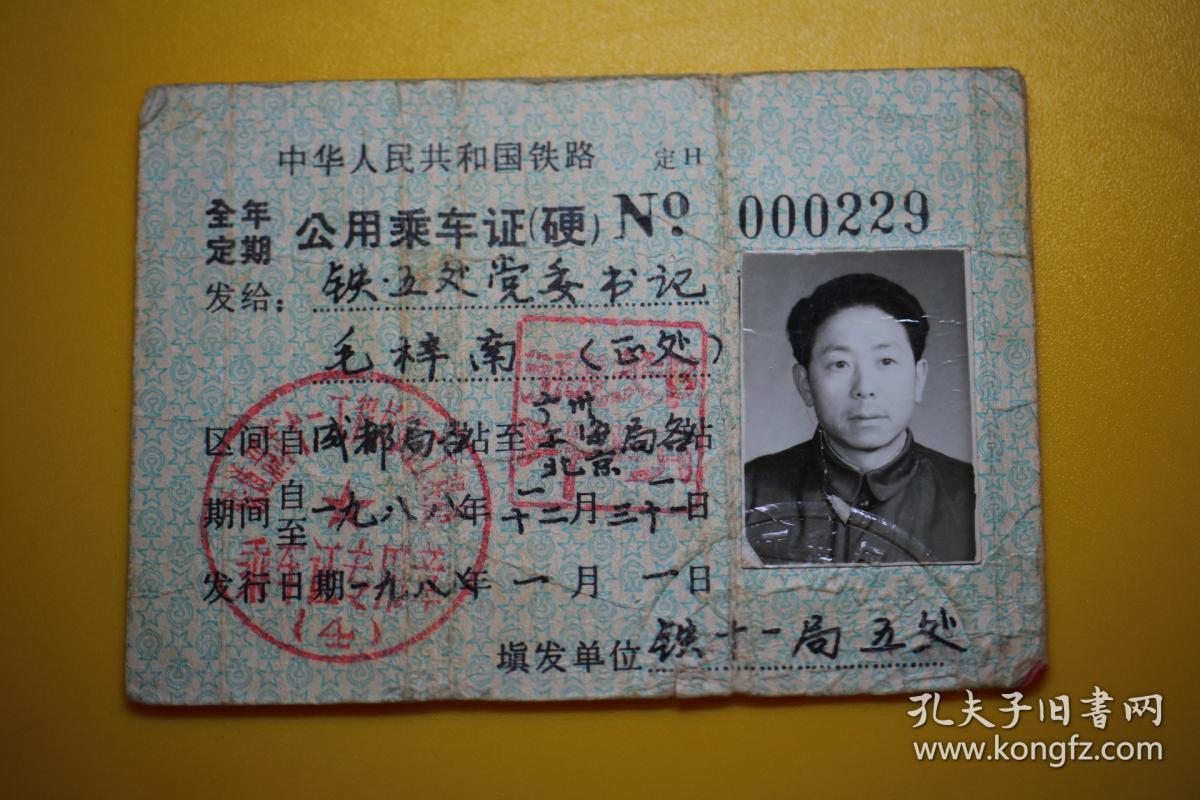 中华人民共和国铁路 定H
全年
定期
公用乘车证(硬) No 000229
发给: 铁·五处党委书记
毛梓南 (正处)
广州
区间自成都局各站至上海局各站
北京
自 一
期间 一九八八年 月 一日
至 十二 三十一
发行日期一九八八年 一 月 一日
乘车证专用章
(4)
填发单位铁十一局五处
孔夫子旧書网
www.kongfz.com